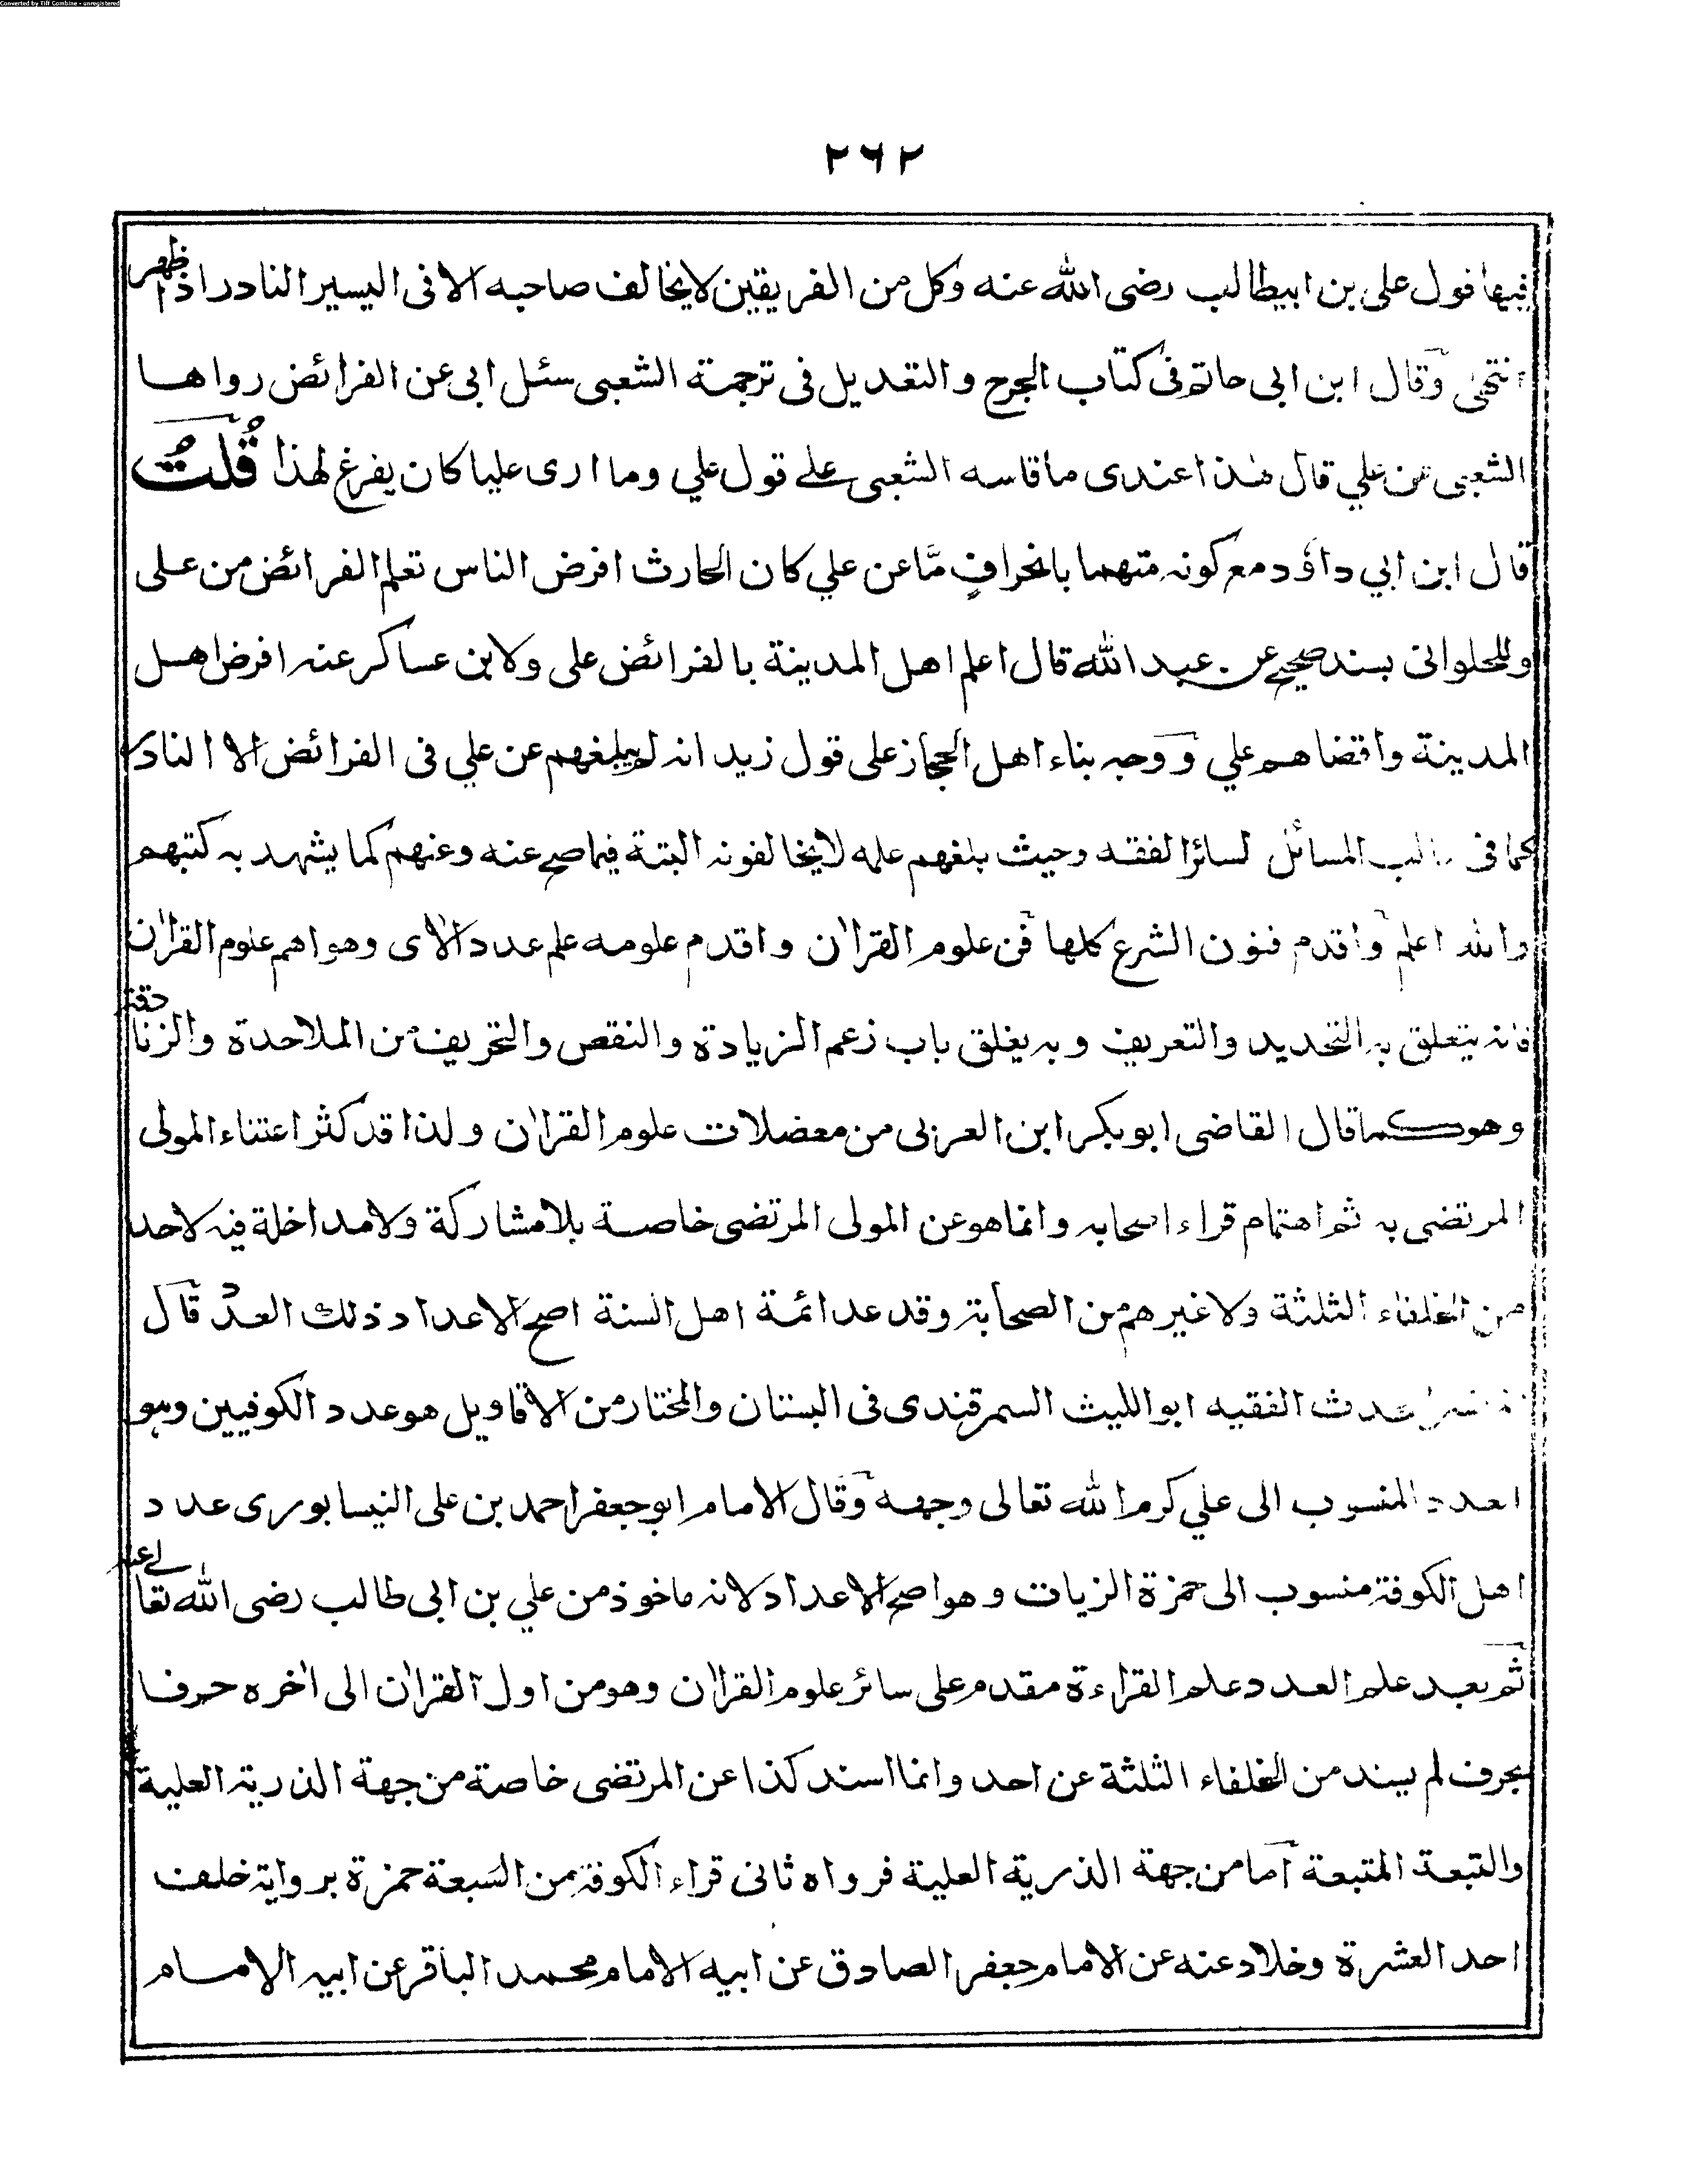 Converted by Tiff Combine - unregistered
٢٦٢
فيها قول علي بن ابيطالب رضى الله عنه وكل من الفريقين لا يخالف صاحبه الا فى اليسير النادر اذا ظهر
انتهى وقال ابن ابى حاتم فى كتاب الجرح والتعديل فى ترجمة الشعبى سئل ابى عن الفرائض رواها
الشعبى عن علي قال هذا عندى ما قاسه الشعبى على قول علي وما ارى عليا كان يفرغ لهذا قُلتُ
قال ابن ابي داؤد مع كونه متهما بانحرافٍ مَّا عن علي كان الحارث افرض الناس تعلم الفرائض من على
وللحلوانى بسند صحيح عن عبد الله قال اعلم اهل المدينة بالفرائض على ولابن عساكر عنه افرض اهل
المدينة واقضاهم علي ووجه بناء اهل الحجاز على قول زيد انه لم يبلغهم عن علي فى الفرائض الا النادر
كما فى المسائل لسائر الفقه وحيث بلغهم علمه لا يخالفونه البتة فيما صح عنه وعنهم كما يشهد به كتبهم
والله اعلم واقدم فنون الشرع كلها فن علوم القرآن واقدم علومه علم عدد الآى وهو اهم علوم القرآن
فانه يتعلق به التحديد والتعريف وبه يغلق باب زعم الزيادة والنقص والتحريف من الملاحدة والزنادقة
وهو كما قال القاضى ابو بكر ابن العربى من معضلات علوم القرآن ولذا قد كثر اعتناء المولى
المرتضى به ثم اهتمام قراء اصحابه وانما هو عن المولى المرتضى خاصة بلا مشاركة ولا مداخلة فيه لاحد
من الخلفاء الثلثة ولا غيرهم من الصحابة وقد عد ائمة اهل السنة اصح الاعداد ذلك العدد قال
الفقيه ابو الليث السمرقندى فى البستان والمختار من الاقاويل هو عدد الكوفيين وهو
العدد المنسوب الى علي كرم الله تعالى وجهه وقال الامام ابو جعفر احمد بن على النيسابورى عدد
اهل الكوفة منسوب الى حمزة الزيات وهو اصح الاعداد لانه ماخوذ من علي بن ابى طالب رضى الله تعالے عنه
ثم بعد علم العدد علم القراءة مقدم على سائر علوم القرآن وهو من اول القرآن الى آخره حرفا
بحرف لم يسند من الخلفاء الثلثة عن احد وانما اسند كذا عن المرتضى خاصة من جهة الذرية العلية
والتبعة المتبعة اما من جهة الذرية العلية فرواه ثانى قراء الكوفة من السبعة حمزة برواية خلف
احد العشرة وخلاد عنه عن الامام جعفر الصادق عن ابيه الامام محمد الباقر عن ابيه الامام